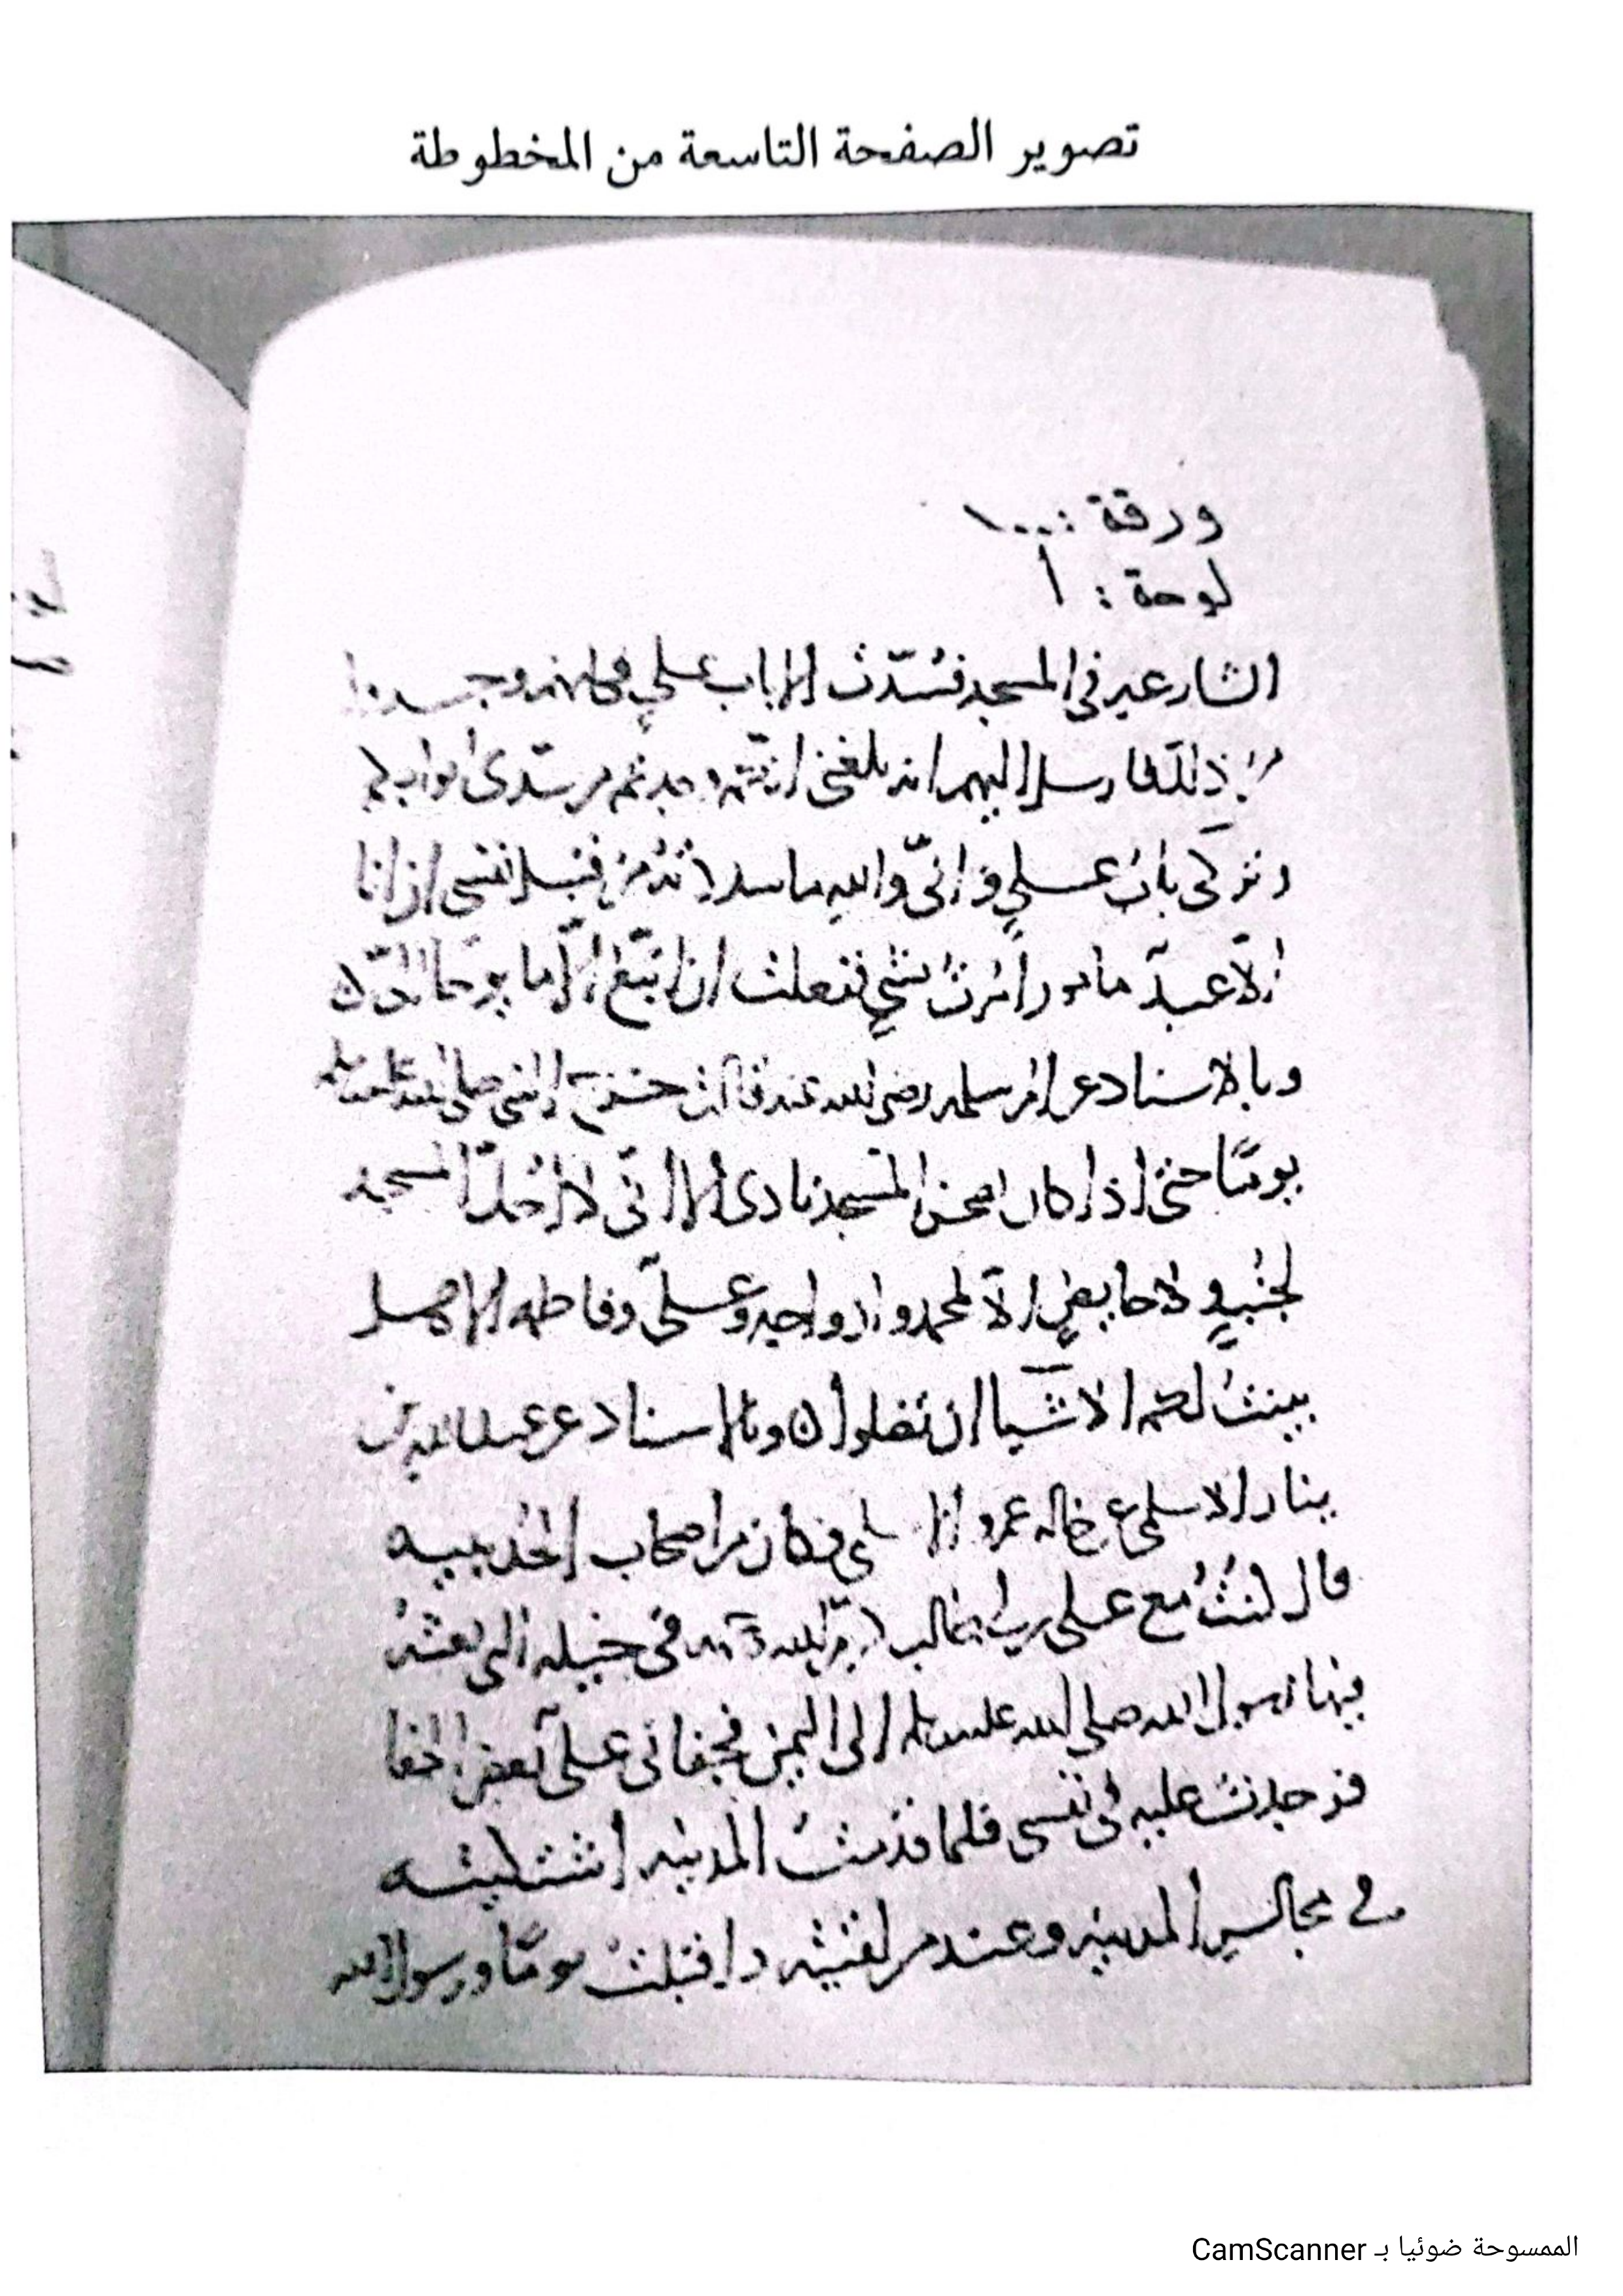 تصوير الصفحة التاسعة من المخطوطة
ورقة : ١٠٠٠
لوحة : أ
الشارعين في المسجد فسُدّت الا باب علي فكانهم وجدوا
من ذلك فارسل اليهم انه بلغني انكم وجدتم من سدّي ابوابكم
وتركي بابُ علي واني والله ما سددتُ من قبل نفسي ان انا
الا عبدٌ مامور اُمرتُ بشي ففعلت ان اتّبع الا ما يوحى اليّ ه
وبالاسناد عن ام سلمه رضي الله عنه قالت خرج النبي صلى الله عليه وسلم
يومًا حتى اذا كان بصحن المسجد نادى الا اني لا اُحلّ المسجد
لجُنبٍ ولا حايضٍ الا لمحمد وازواجه وعلي وفاطمه الا هل
بينتُ لكم الاشيا ان تضلوا ه وبالاسناد عن عبد الله بن
ينار الاسلمي عن خاله عمرو الاسلمي وكان من اصحاب الحديبيه
قال كنتُ مع علي بن ابي طالب في خيله التي بعثهُ
فيها رسول الله صلى الله عليه وسلم الى اليمن فجفاني علي بعض الجفا
فوجدتُ عليه في نفسي فلما قدمتُ المدينه اشتكيته
في مجالس المدينه وعند من لقيته واقبلتُ يومًا ورسول الله
الممسوحة ضوئيا بـ CamScanner